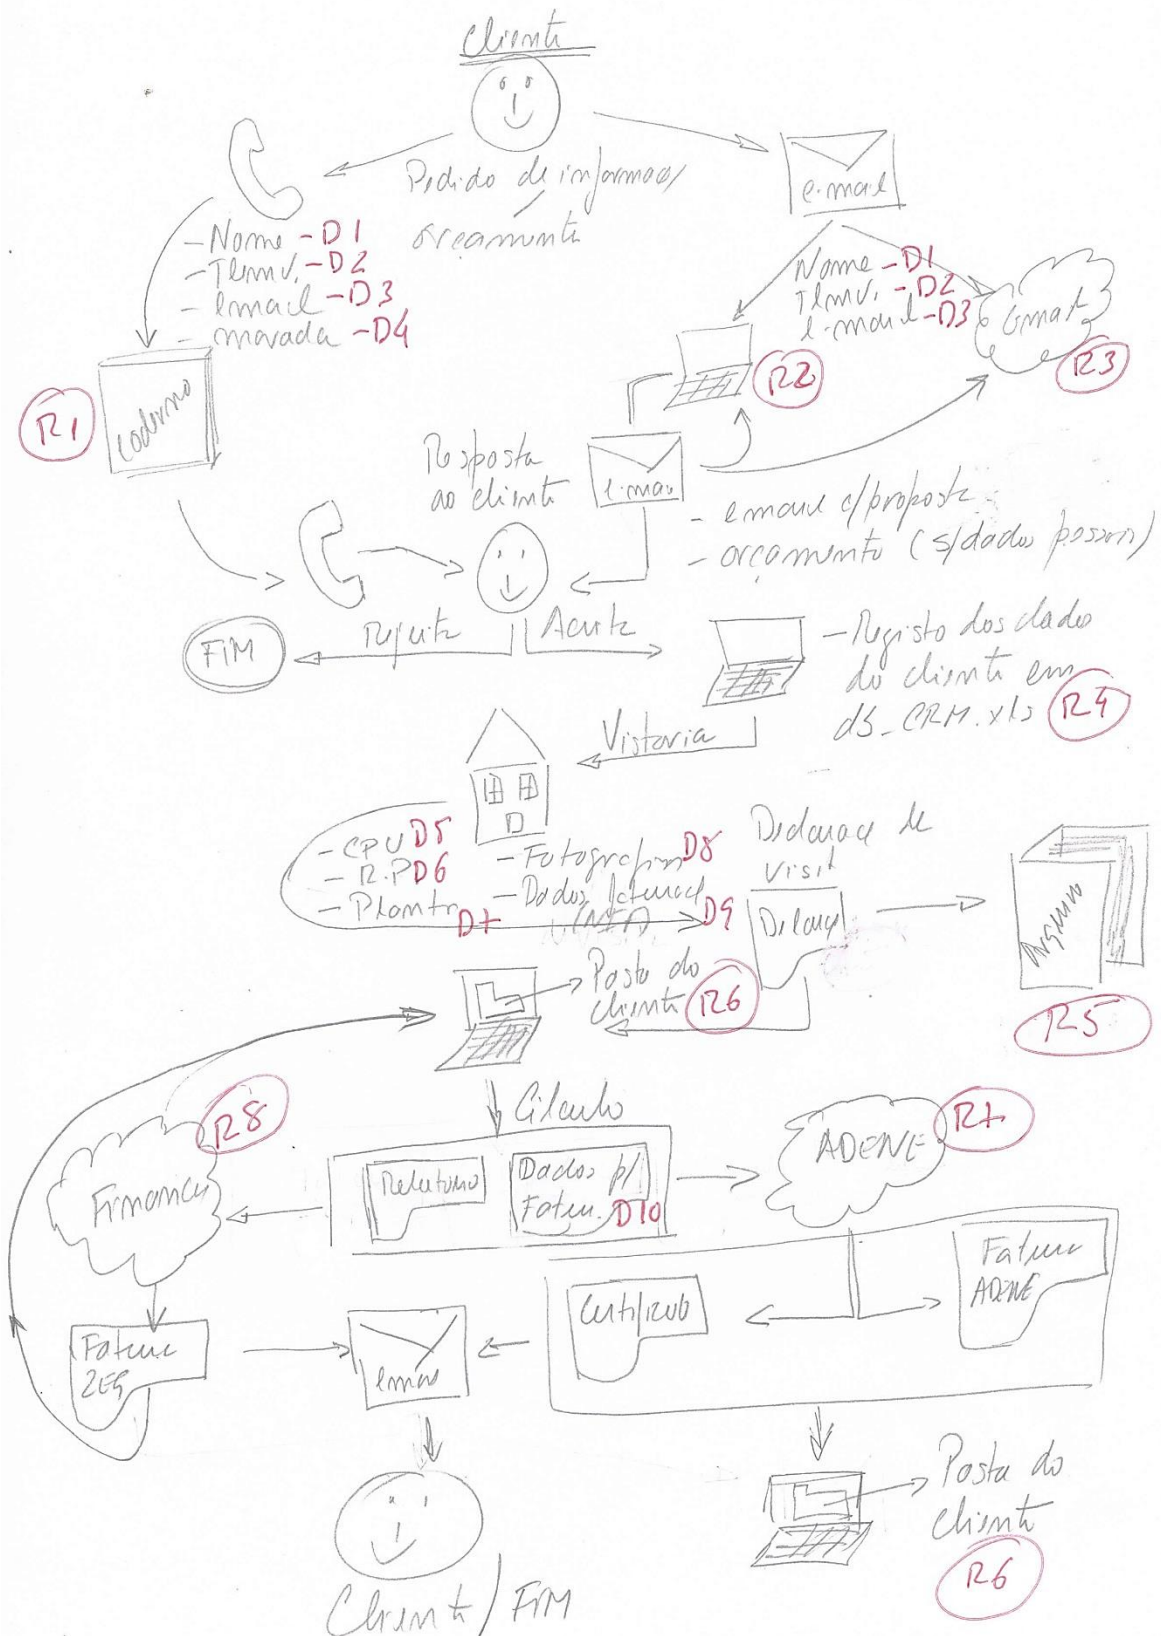 Cliente
Pedido de informação/
orçamento
e-mail
- Nome - D1
- Tlmv. - D2
- email - D3
- morada - D4
Nome - D1
Tlmv. - D2
e-mail - D3
Gmail
R3
R2
R1
Caderno
Resposta
ao cliente
e-mail
- email c/ proposta
- orçamento (s/ dados pessoais)
FIM
Rejeita
Aceita
- Registo dos dados
do cliente em
db_CRM.xls R4
Vistoria
- CPU D5
- R.P D6
- Planta D7
- Fotografias D8
- Dados faturação D9
(NIF)
Declaração de
visita
Declaração
Arquivo
R5
Pasta do
cliente R6
Cálculo
R8
Finanças
Relatório
Dados p/
Fatur. D10
ADENE
R7
Certificado
Fatura
ADENE
Fatura
email
Pasta do
cliente
R6
Cliente / FIM